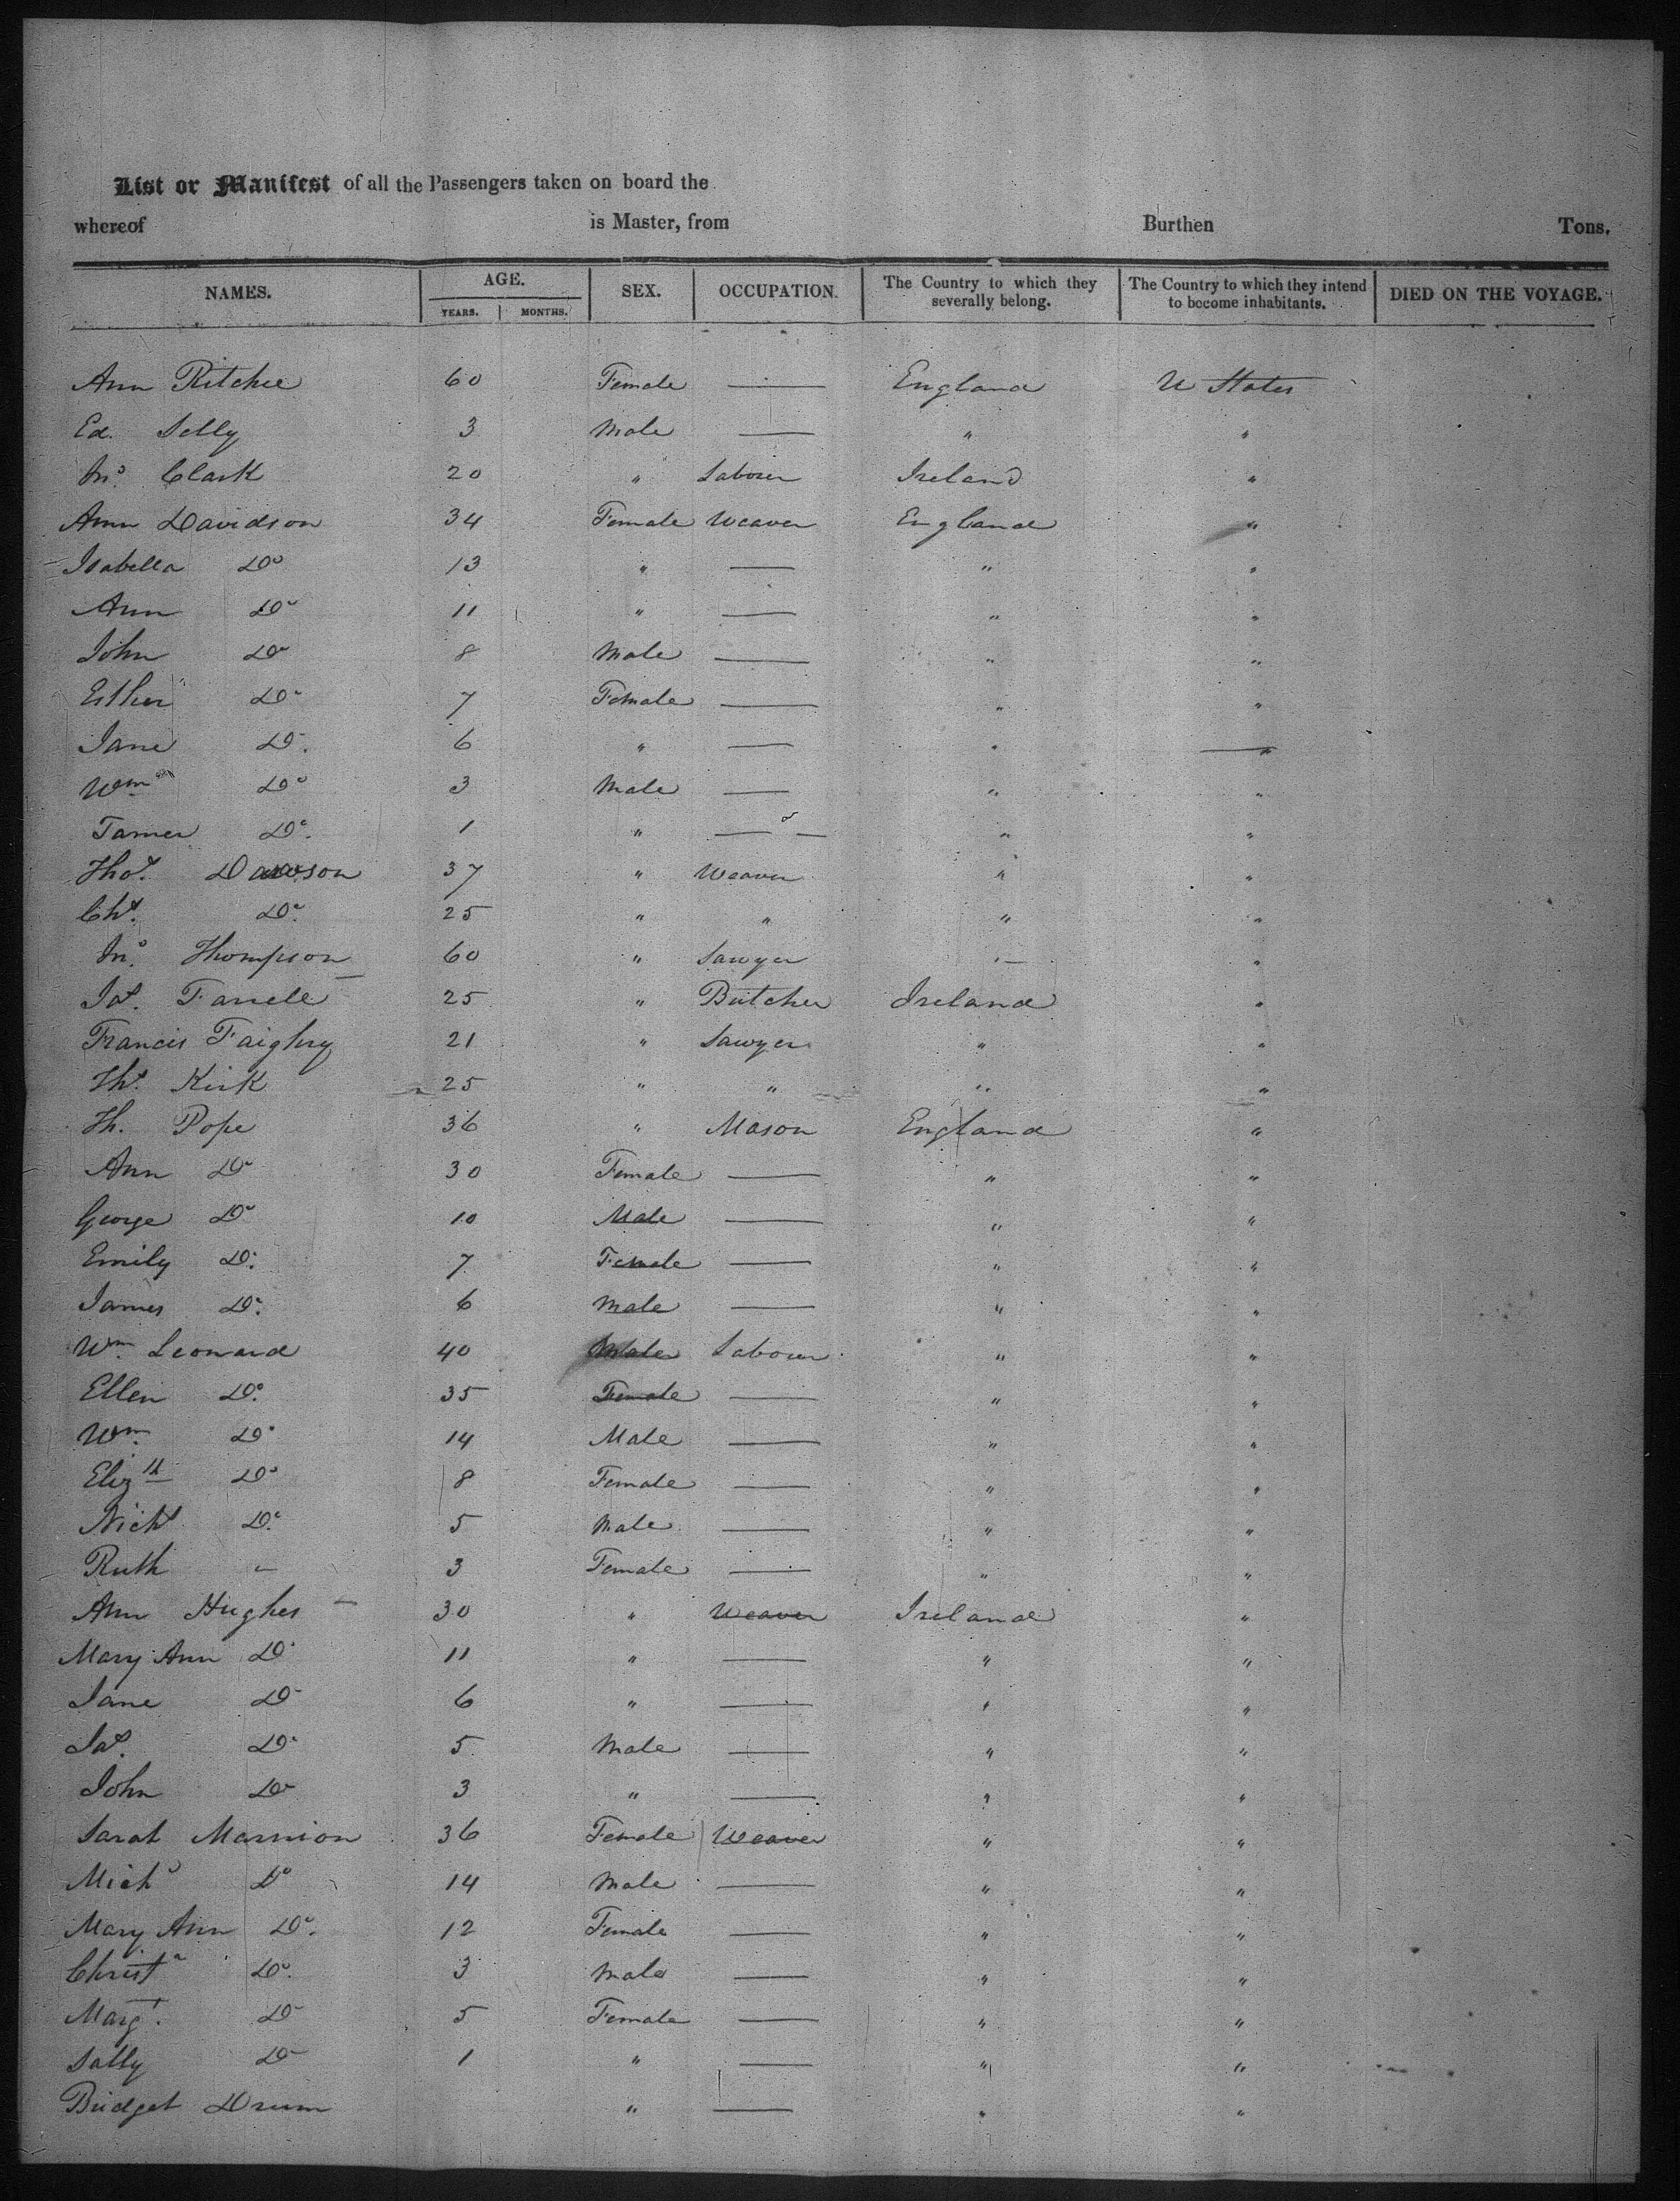 List or Manifest of all the Passengers taken on board the
whereof is Master, from Burthen Tons.
NAMES. AGE. SEX. OCCUPATION. The Country to which they severally belong. The Country to which they intend to become inhabitants. DIED ON THE VOYAGE.
YEARS. MONTHS.
Ann Ritchie 60 Female — England U States
Ed. Selly 3 Male — " "
Jno. Clark 20 " Laborer Ireland "
Ann Davidson 34 Female Weaver England "
Isabella Do 13 " — " "
Ann Do 11 " — " "
John Do 8 Male — " "
Esther Do 7 Female — " "
Jane Do. 6 " — " "
Wm Do 3 Male — " "
Tamer Do. 1 " — " "
Thos. Dawson 37 " Weaver " "
Chs. Do. 25 " " " "
Jno. Thompson 60 " Sawyer " "
Jas. Farrele 25 " Butcher Ireland "
Francis Faighry 21 " Sawyer " "
Ths. Kirk 25 " " " "
Th. Pope 36 " Mason England "
Ann Do 30 Female — " "
George Do 10 Male — " "
Emily Do. 7 Female — " "
James Do. 6 Male — " "
Wm. Leonard 40 Male Labourer " "
Ellen Do. 35 Female — " "
Wm. Do 14 Male — " "
Elizth Do 8 Female — " "
Nichs Do. 5 Male — " "
Ruth - 3 Female — " "
Ann Hughes 30 " Weaver Ireland "
Mary Ann Do 11 " — " "
Jane Do 6 " — " "
Jas. Do 5 Male — " "
John Do 3 " — " "
Sarah Marnion 36 Female Weaver " "
Michl Do 14 Male — " "
Mary Ann Do. 12 Female — " "
Christr Do. 3 Male — " "
Margt. Do 5 Female — " "
Sally Do 1 " — " "
Bridget Drum " — " "